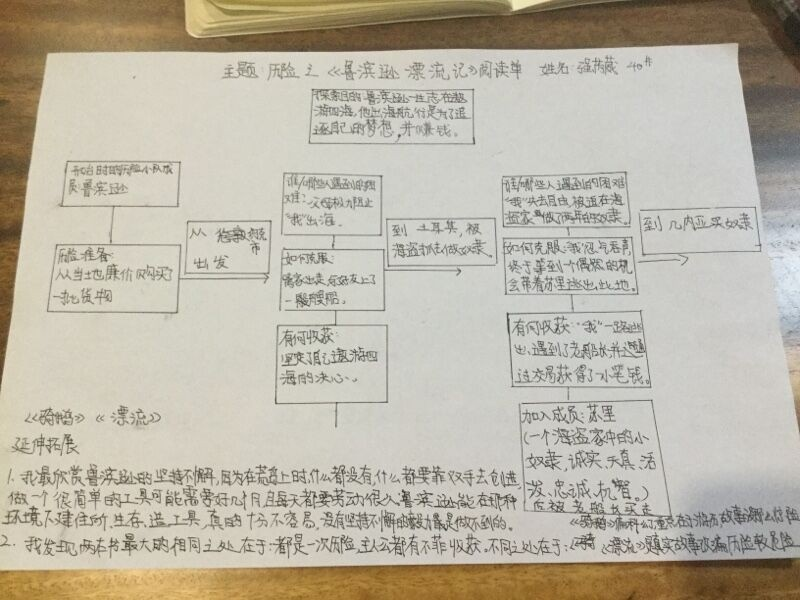 主题:历险之《鲁滨逊漂流记》阅读单 姓名:强芮葳 40#
探索目的:鲁滨逊一生志在遨
游四海,他出海航行是为了追
逐自己的梦想,并赚钱。
开始时的历险小队成
员:鲁滨逊
历险准备:
从当地廉价购买了
一批货物
从伦敦
市
出发
谁/哪些人遇到的困
难?父母极力阻止
“我”出海。
如何克服:
离家出走,和好友上了
一艘
有何收获:
坚定了自己遨游四
海的决心。
到土耳其,被
海盗抓去做奴隶。
谁/哪些人遇到的困难
“我”失去自由,被迫在海
盗家做了两年的奴隶。
如何克服:“我”忍气吞声
终于等到一个偶然的机
会带着苏里逃出此地。
有何收获:“我”一路逃
出,遇到了老船长并通
过交易获得了小笔钱。
加入成员:苏里
(一个海盗家中的小
奴隶,诚实、天真、活
发、忠诚、机智。)
后被老船长买走
到几内亚买奴隶
《骑鹅》《漂流》
延伸拓展
1.我最欣赏鲁滨逊的坚持不懈,因为在荒岛上时,什么都没有,什么都要靠双手去创造,
做一个很简单的工具可能需要好几个月,且每天都要劳动很久,鲁滨逊能在那种
环境下建住所,生存,造工具,真的十分不容易,没有坚持不懈的毅力最是做不到的。
2.我发现两本书最大的相同之处在于:都是一次历险,主人公都有不菲收获。不同之处在于:《骑
《漂流》真实故事改编历险较危险